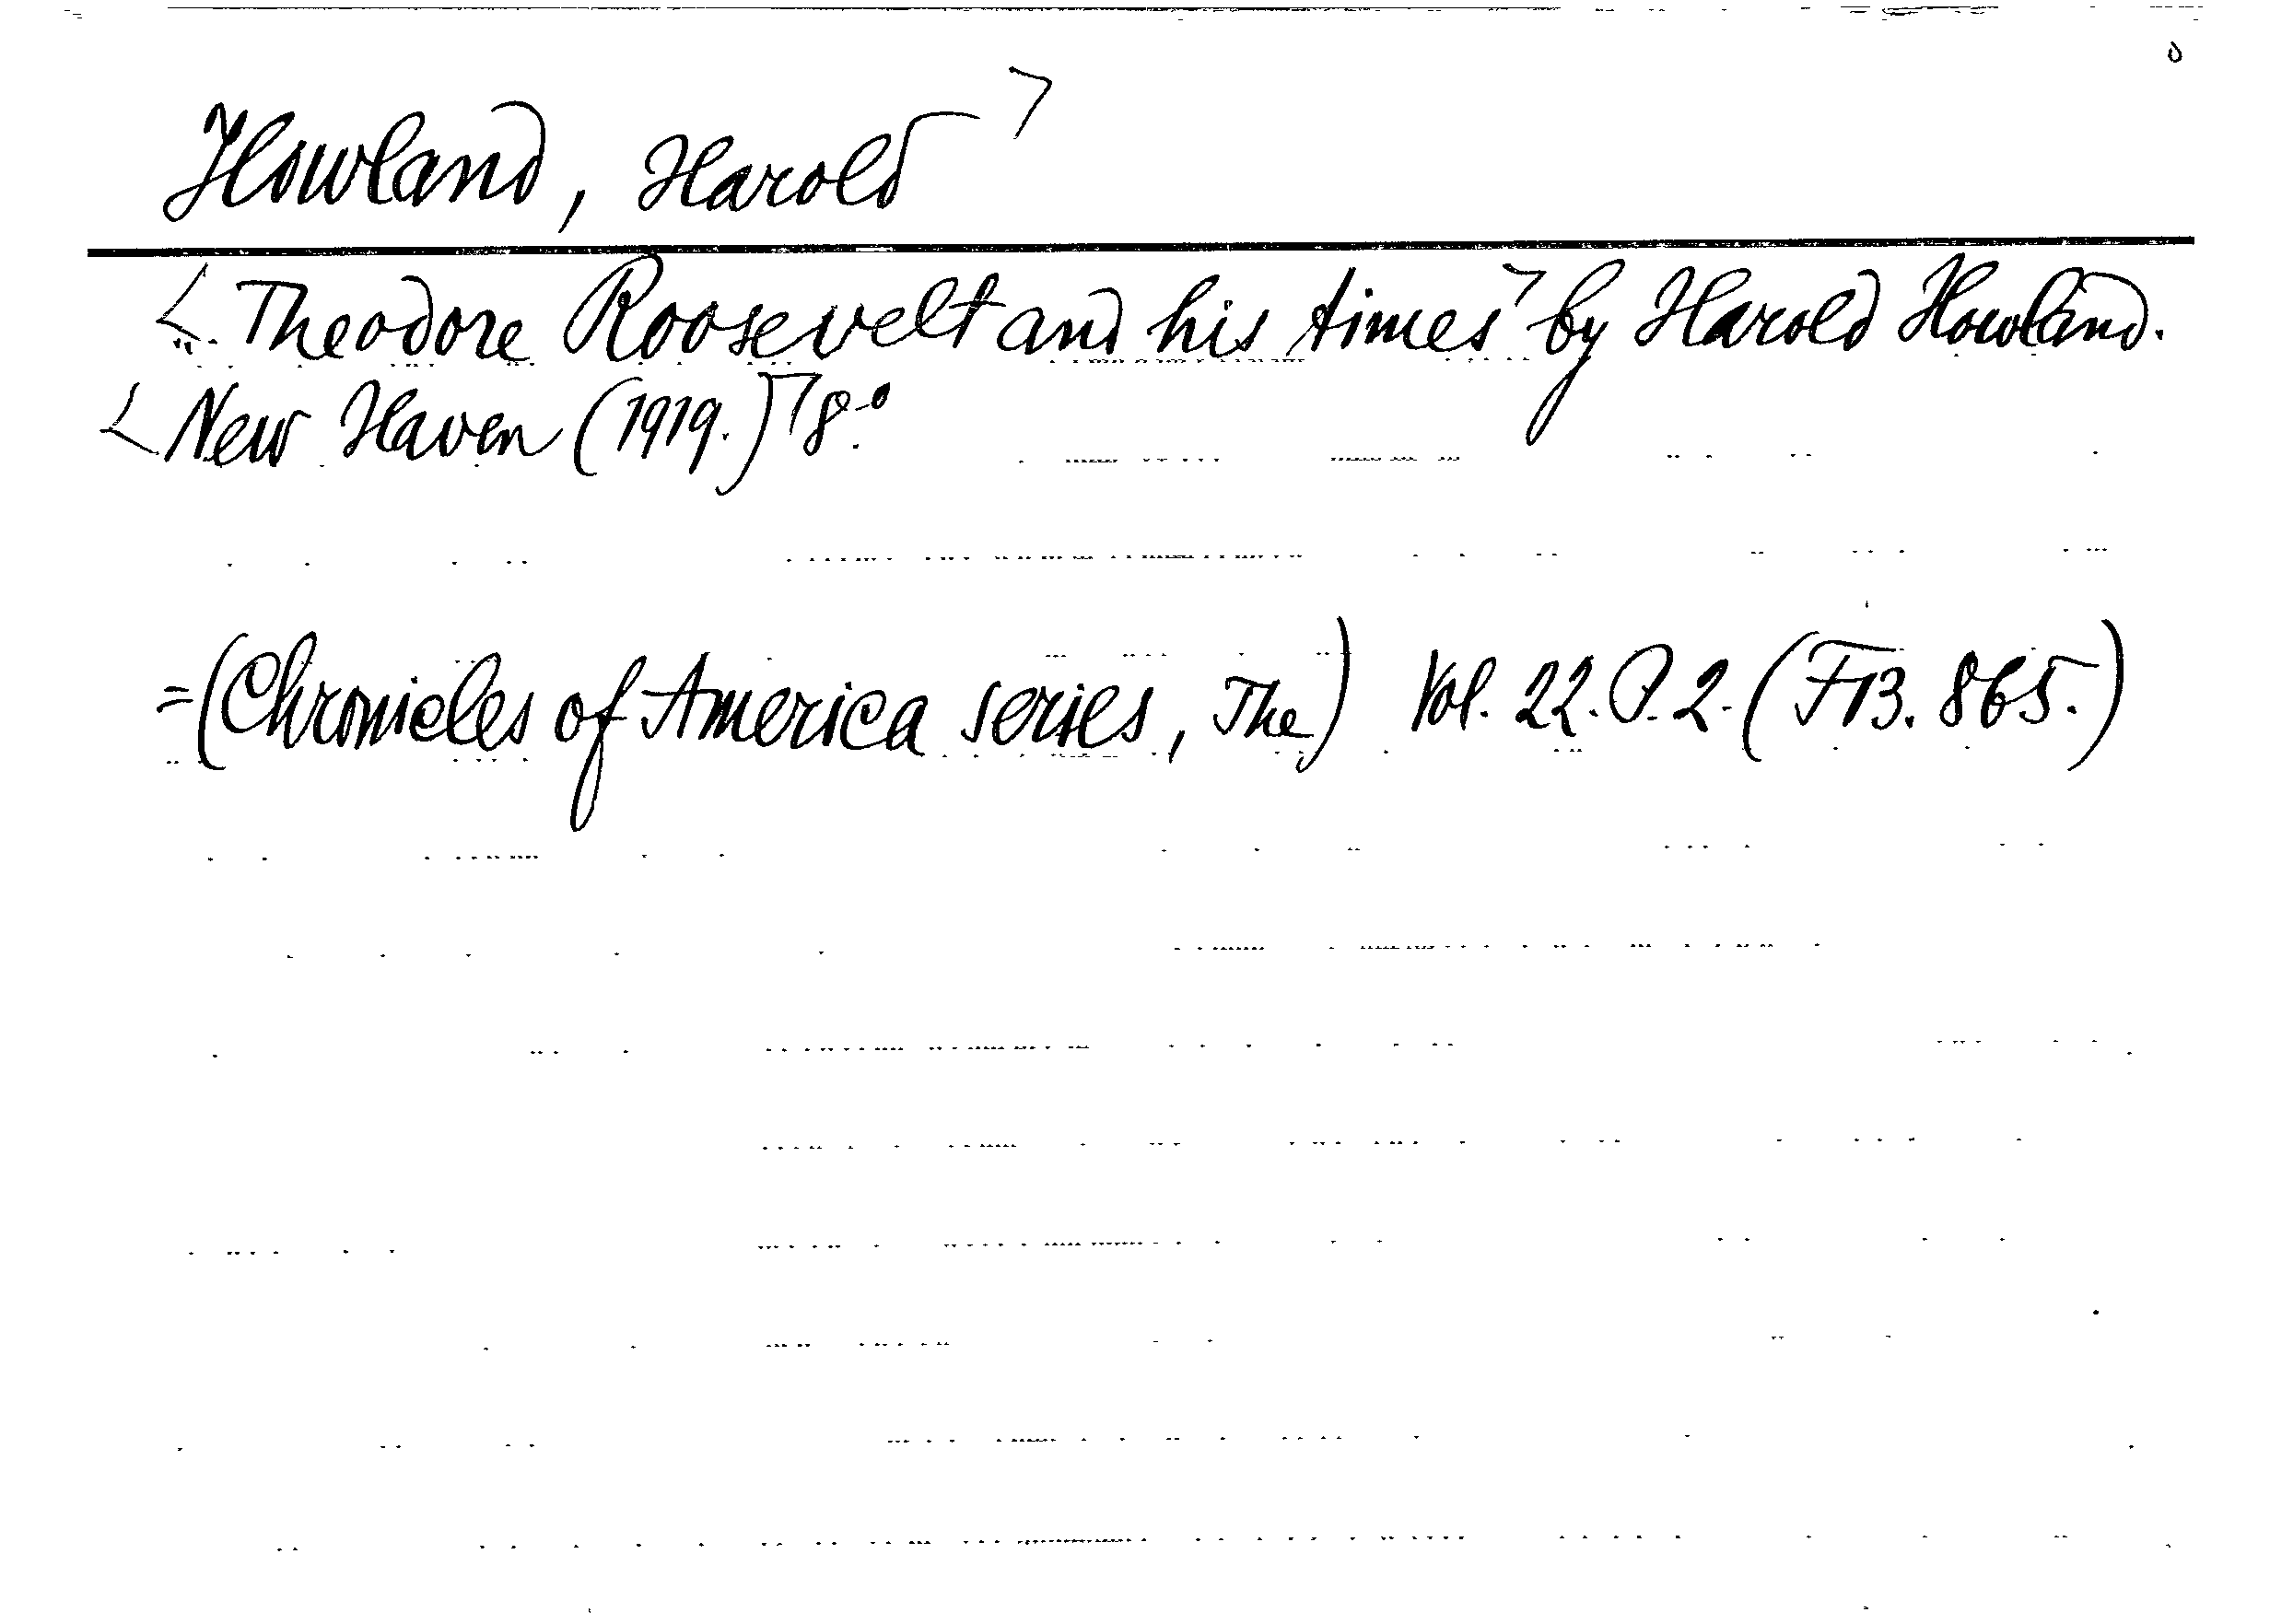 Howland, Harold
Theodore Roosevelt and his times by Harold Howland.
New Haven (1919.) 8.°
=(Chronicles of America series, The) Vol. 22. P. 2. (F13. 865.)